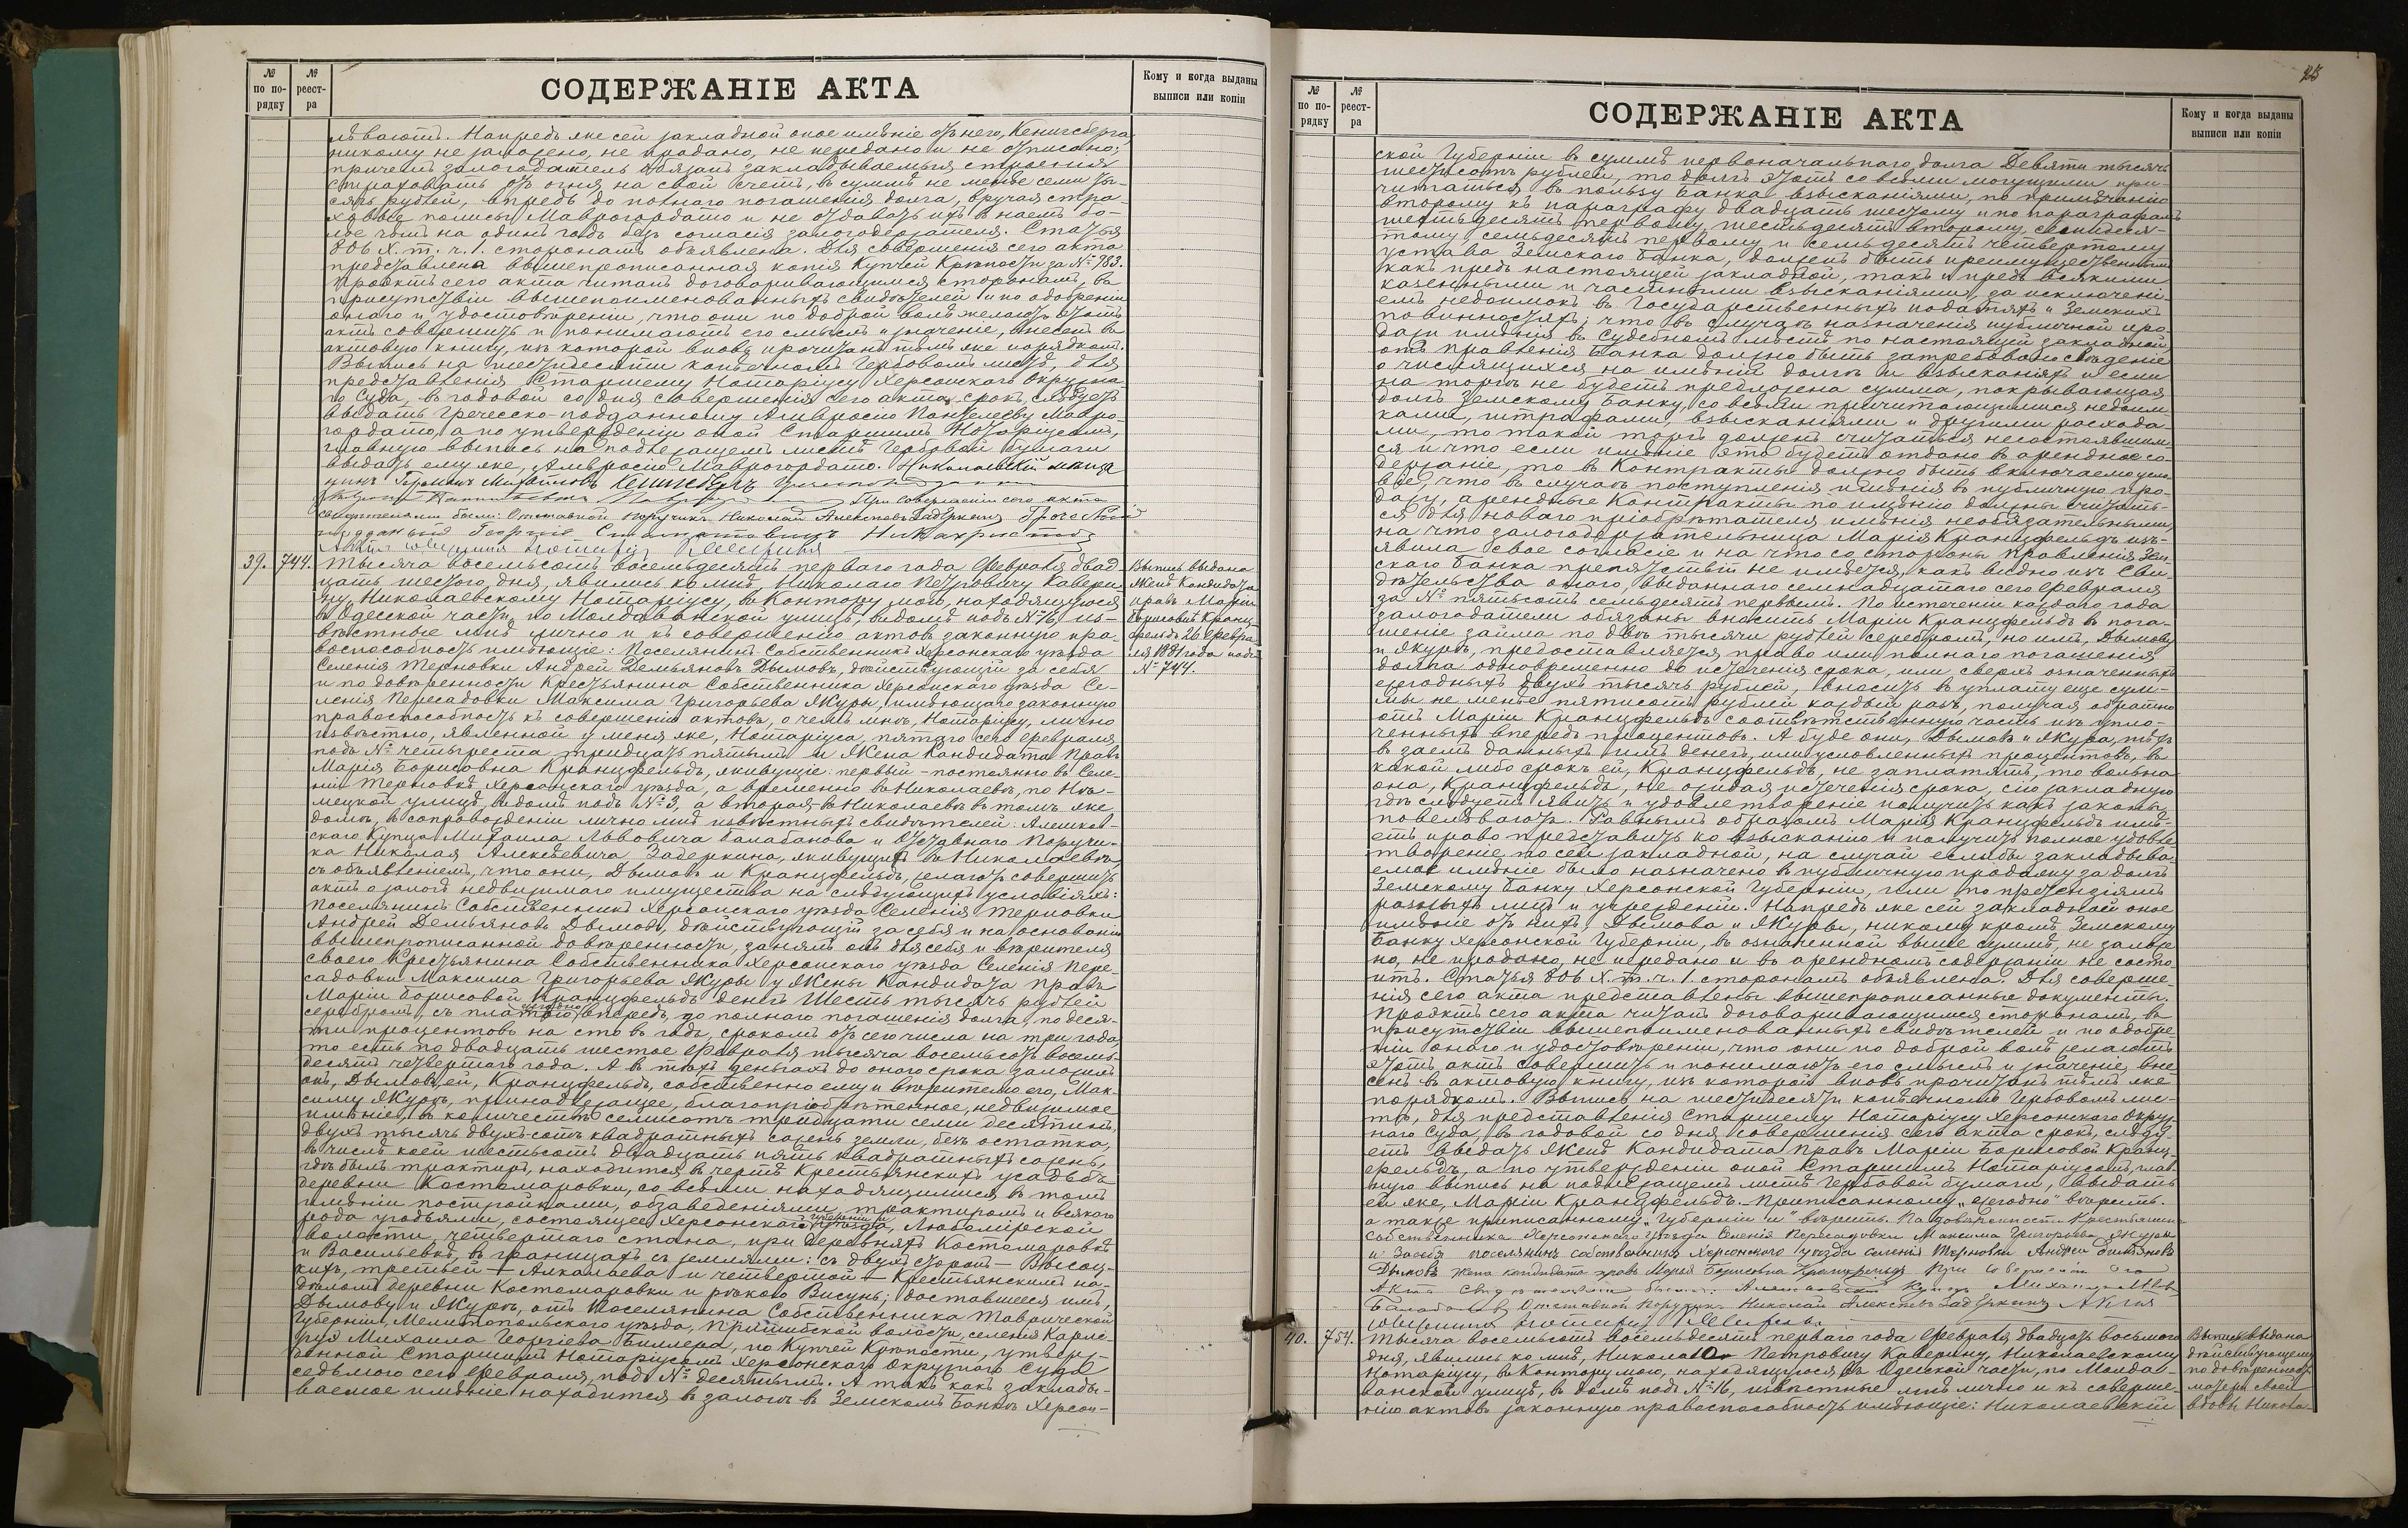 № по по-рядку
№ реест-ра
СОДЕРЖАНІЕ АКТА
Кому и когда выданы выписи или копіи
ловаютъ. Напредь же сей закладной оное имѣніе отъ него, Кенигсберга,
никому не заложено, не продано, не передано и не отписано;
причемъ залогодатель обязанъ закладываемыя строенія
страховать отъ огня на свой счетъ, въ суммѣ не менѣе семи ты-
сячъ рублей, впредь до полнаго погашенія долга, вручая стра-
ховые полисы Маврогордато и не отдавать ихъ въ наемъ бо-
лѣе чѣмъ на одинъ годъ безъ согласія залогодержателя. Статья
806 Х. т. ч. 1. сторонамъ объявлена. Для совершенія сего акта
представлена вышепрописанная копія Купчей Крѣпости за № 983.
Проэктъ сего акта читанъ договаривающимся сторонамъ, въ
присутствіи вышепоименованныхъ свидѣтелей и по одобреніи
онаго и удостовѣреніи, что они по доброй волѣ желаютъ этотъ
актъ совершить и понимаютъ его смыслъ и значеніе, внесенъ въ
актовую книгу, изъ которой вновь прочитанъ тѣмъ же порядкомъ.
Выпись на шестидесяти копѣечномъ Гербовомъ листѣ, для
представленія Старшему Нотаріусу Херсонскаго Окружна-
го Суда, въ годовой со дня совершенія сего акта срокъ, слѣдуетъ
выдать Греческо-подданному Амвросію Пантелееву Мавро-
гордато, а по утвержденіи оной Старшимъ Нотаріусомъ,
главную выпись на подлежащемъ листѣ Гербовой бумаги
выдать ему же, Амвросію Маврогордато. Николаевскій мѣща
нинъ Михайловъ Кенигсбергъ
При совершеніи сего акта
свидѣтелями были: Отставной Поручикъ Николай Алексѣевъ Задеркинъ Греческій
подданный Георгій
39. 744. Тысяча восемьсотъ восемьдесятъ перваго года Февраля двад
цать шестого дня, явились ко мнѣ, Николаю Петровичу Кавери
ну, Николаевскому Нотаріусу, въ Контору мою, находящуюся
въ Одесской части, по Молдаванской улицѣ, въ домѣ подъ № 16, из-
вѣстные мнѣ лично и къ совершенію актовъ законную пра-
воспособность имѣющіе: Поселянинъ Собственникъ Херсонскаго уѣзда
Селенія Терновки Андрей Демьяновъ Дымовъ, дѣйствующій за себя
и по довѣренности Крестьянина Собственника Херсонскаго уѣзда Се-
ленія Пересадовки Максима Григорьева Якуры, имѣющаго законную
правоспособность къ совершенію актовъ, о чемъ мнѣ, Нотаріусу, лично
извѣстно, явленной у меня же, Нотаріуса, пятаго сего Февраля
подъ № четыреста тридцать пятымъ и Жена Кандидата Правъ
Марія Борисовна Кранцфельдъ, живущіе: первый – постоянно въ Селе-
ніи Терновкѣ Херсонскаго уѣзда, а временно въ Николаевѣ, по Нѣ-
мецкой улицѣ, въ домѣ подъ № 3, а вторая – въ Николаевѣ въ томъ же
домѣ, въ сопровожденіи лично мнѣ извѣстныхъ свидѣтелей: Алешков-
скаго Купца Михаила Львовича Балабанова и Отставнаго Поручи-
ка Николая Алексѣевича Задеркина, живущихъ въ Николаевѣ,
съ объявленіемъ, что они, Дымовъ и Кранцфельдъ, желаютъ совершить
актъ о залогѣ недвижимаго имущества на слѣдующихъ условіяхъ:
Поселянинъ Собственникъ Херсонскаго уѣзда Селенія Терновки
Андрей Демьяновъ Дымовъ, дѣйствующій за себя и на основаніи
вышепрописанной довѣренности, занялъ онъ для себя и вѣрителя
своего Крестьянина Собственника Херсонскаго уѣзда Селенія Пере-
садовки Максима Григорьева Якуры у Жены Кандидата Правъ
Маріи Борисовой Кранцфельдъ денегъ Шесть тысячъ рублей
серебромъ, съ платою ежегодно впередъ, до полнаго погашенія долга, по деся-
ти процентовъ на сто въ годъ, срокомъ отъ сего числа на три года,
то есть по двадцать шестое Февраля тысяча восемьсотъ восемь-
десятъ четвертаго года. А въ тѣхъ деньгахъ до онаго срока заложилъ
онъ, Дымовъ, ей, Кранцфельдъ, собственно ему и вѣрителю его, Мак-
симу Якурѣ, принадлежащее, благопріобрѣтенное, недвижимое
имѣніе, въ количествѣ семисотъ тридцати семи десятинъ,
двухъ тысячъ двухъ-сотъ квадратныхъ сажень земли, безъ остатка,
въ числѣ коей шестьсотъ двадцать пять квадратныхъ сажень,
гдѣ былъ трактиръ, находится въ чертѣ Крестьянскихъ усадебъ
деревни Костомаровки, со всѣми находящимися въ томъ
имѣніи постройками, обзаведеніями, трактиромъ и всякаго
рода угодьями, состоящее Херсонской губерніи и уѣзда, Любомірской
волости, четвертаго стана, при деревняхъ Костомаровкѣ
и Васильевкѣ, въ границахъ съ землями: съ двухъ сторонъ – Высоц-
кихъ, третьей – Алкалаева и четвертой – Крестьянскимъ на-
дѣломъ деревни Костомаровки и рѣкою Висунь; доставшееся имъ,
Дымову и Якурѣ, отъ Поселянина Собственника Таврической
Губерніи, Мелитопольскаго уѣзда, Пришибской волости, селенія Карлс-
руэ Михаила Георгіева Биллера, по Купчей Крѣпости, утверж-
денной Старшимъ Нотаріусомъ Херсонскаго Окружнаго Суда
седьмого сего Февраля, подъ № десятымъ. А такъ какъ заклады-
ваемое имѣніе находится въ залогѣ въ Земскомъ Банкѣ Херсон-
Выпись выдана
Женѣ Кандидата
правъ Маріи
Борисовнѣ Кранц-
фельдъ 26 Февра-
ля 1881 года подъ
№ 744.
№ по по-рядку
№ реест-ра
СОДЕРЖАНІЕ АКТА
Кому и когда выданы выписи или копіи
ской Губерніи въ суммѣ первоначальнаго долга Девяти тысячъ
шестисотъ рублей, то долгъ этотъ со всѣми могущими при-
читаться въ пользу Банка взысканіями, по примѣчанію
второму къ параграфу двадцать шестому и по параграфамъ
шестьдесятъ первому, шестьдесятъ второму, семидеся-
тому, семьдесятъ первому и семьдесятъ четвертому
устава Земскаго Банка, долженъ быть преимущественнымъ
какъ предъ настоящей закладной, такъ и предъ всякими
казенными и частными взысканіями, за исключені-
емъ недоимокъ въ Государственныхъ податяхъ и Земскихъ
повинностяхъ; что въ случаѣ назначенія публичной про-
дажи имѣнія въ Судебномъ мѣстѣ по настоящей закладной
отъ Правленія Банка должно быть затребовано свѣденіе
о числящихся на имѣніи долгѣ и взысканіяхъ и если
на торгѣ не будетъ предложена сумма, покрывающая
долгъ Земскому Банку, со всѣми причитающимися недоим-
ками, штрафами, взысканіями и другими расхода-
ми, то такой торгъ долженъ считаться несостоявшим-
ся и что если имѣніе это будетъ отдано въ арендное со-
держаніе, то въ Контракты должно быть включаемо усло-
віе, что въ случаѣ поступленія имѣнія въ публичную про-
дажу, арендные Контракты по имѣнію должны считать-
ся для новаго пріобрѣтателя имѣнія необязательными,
на что залогодержательница Марія Кранцфельдъ изъ-
явила свое согласіе и на что со стороны Правленія Зем-
скаго Банка препятствій не имѣется, какъ видно изъ Сви-
дѣтельства онаго, выданнаго семнадцатаго сего Февраля
за № пятьсотъ семьдесятъ первымъ. По истеченіи каждаго года
залогодатели обязаны вносить Маріи Кранцфельдъ въ пога-
шеніе займа по двѣ тысячи рублей серебромъ, но имъ, Дымову
и Якурѣ, предоставляется право или полнаго погашенія
долга одновременно до истеченія срока, или сверхъ означенныхъ
ежегодныхъ двухъ тысячъ рублей, вносить въ уплату еще сум-
мы не менѣе пятисотъ рублей каждый разъ, получая обратно
отъ Маріи Кранцфельдъ соотвѣтственную часть изъ упло-
ченныхъ впередъ процентовъ. А буде они, Дымовъ и Якура, тѣхъ
въ заемъ данныхъ имъ денегъ, или условленныхъ процентовъ, въ
какой либо срокъ ей, Кранцфельдъ, не заплатятъ, то вольна
она, Кранцфельдъ, не ожидая истеченія срока, сію закладную
гдѣ слѣдуетъ явить и удовлетвореніе получить какъ законы
повелѣваютъ. Равнымъ образомъ Марія Кранцфельдъ имѣ-
етъ право представить ко взысканію и получить полное удовле
твореніе по сей закладной, на случай еслибы закладыва-
емое имѣніе было назначено въ публичную продажу за долгъ
Земскому Банку Херсонской Губерніи, или по претензіямъ
разныхъ лицъ и учрежденій. Напредь же сей закладной оное
имѣніе отъ нихъ, Дымова и Якуры, никому кромѣ Земскому
Банку Херсонской Губерніи, въ означенной выше суммѣ, не заложе
но, не продано, не передано и въ арендномъ содержаніи не состо-
итъ. Статья 806 Х. т. ч. 1. сторонамъ объявлена. Для соверше-
нія сего акта представлены вышепрописанные документы.
Проэктъ сего акта читанъ договаривающимся сторонамъ, въ
присутствіи вышепоименованныхъ свидѣтелей и по одобре
ніи онаго и удостовѣреніи, что они по доброй волѣ желаютъ
этотъ актъ совершить и понимаютъ его смыслъ и значеніе, вне
сенъ въ актовую книгу, изъ которой вновь прочитанъ тѣмъ же
порядкомъ. Выпись на шестидесяти копѣечномъ Гербовомъ лис-
тѣ, для представленія Старшему Нотаріусу Херсонскаго Окруж-
наго Суда, въ годовой со дня совершенія сего акта срокъ, слѣду-
етъ выдать Женѣ Кандидата Правъ Маріи Борисовой Кранц-
фельдъ, а по утвержденіи оной Старшимъ Нотаріусомъ, глав
ную выпись на подлежащемъ листѣ Гербовой бумаги, выдать
ей же, Маріи Кранцфельдъ. Приписанному „ежегодно" вѣрить.
а также приписанному „Губерніи и" вѣрить. По довѣренности Крестьянина
Собственника Херсонскаго уѣзда Селенія Пересадовки Максима Григорьева Якуры
и за себя поселянинъ собственникъ Херсонскаго уѣзда селенія Терновки Андрей Демьяновъ
Дымовъ Жена кандидата правъ Марья Борисовна Кранцфельдъ При совершеніи сего
Акта Свидѣтелями были: Алешковскій Купецъ Михаилъ Львовъ
Балабановъ Отставной Поручикъ Николай Алексѣевъ Задеркинъ
40. 754. Тысяча восемьсотъ восемьдесятъ перваго года Февраля двадцать восьмого
дня, явились ко мнѣ, Николаю Петровичу Каверину, Николаевскому
Нотаріусу, въ Контору мою, находящуюся въ Одесской части, по Молда-
ванской улицѣ, въ домѣ подъ № 16, извѣстные мнѣ лично и къ соверше-
нію актовъ законную правоспособность имѣющіе: Николаевскій
Выпись выдана
дѣйствующему
по довѣренности
матери своей
вдовы Никола-